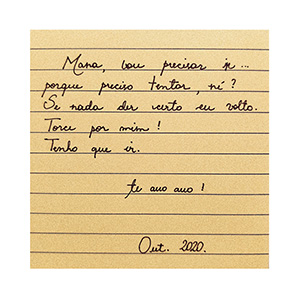 Mana, vou precisar ir...
porque preciso tentar, né?
Se nada der certo eu volto.
Torce por mim!
Tenho que ir.
te amo amo!
Out. 2020.